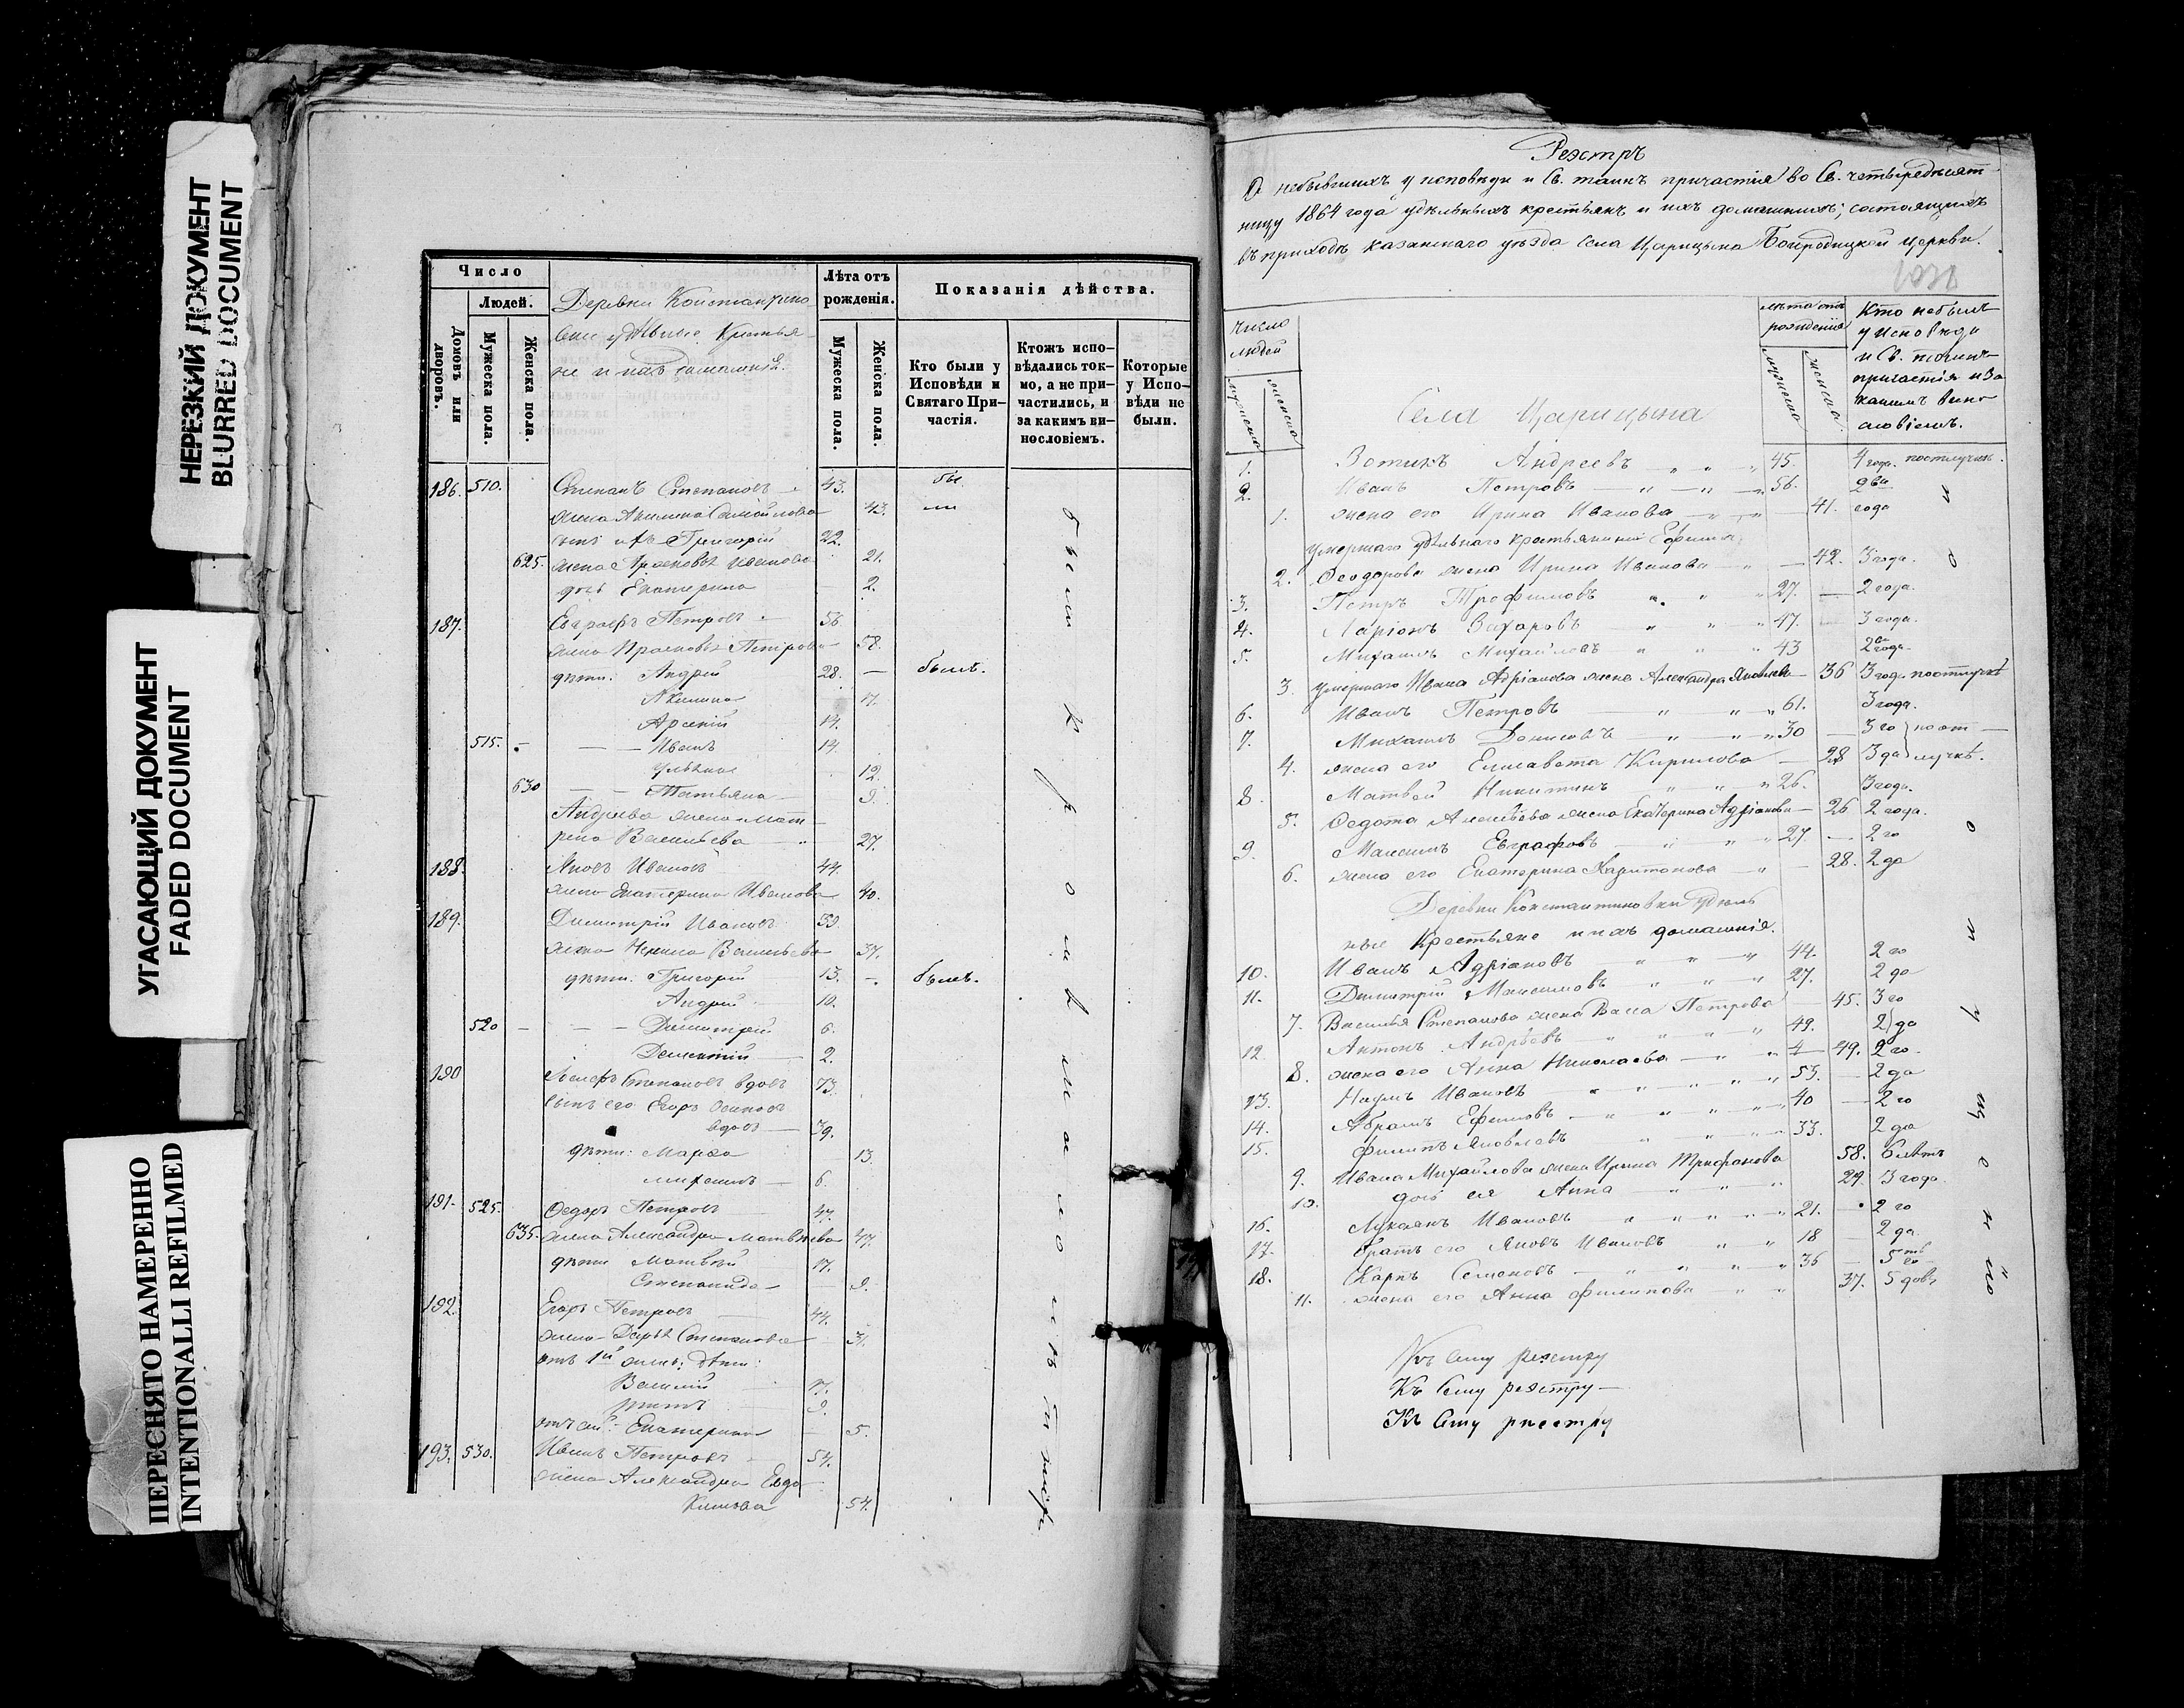 НЕРЕЗКИЙ ДОКУМЕНТ
BLURRED DOCUMENT
УГАСАЮЩИЙ ДОКУМЕНТ
FADED DOCUMENT
ПЕРЕСНЯТО НАМЕРЕННО
INTENTIONALLI REFILMED
Число
Людей.
Домовъ или дворовъ.
Мужеска пола.
Женска пола.
Деревни Константино
вки удѣльные Крестья
не и ихъ домашнiе.
Лѣта отъ рожденія.
Мужеска пола.
Женска пола.
Показанія дѣйства.
Кто были у Исповѣди и Святаго При- частія.
Ктожъ испо- вѣдались ток- мо, а не при- частились, и за какимъ ви- нословіемъ.
Которые у Испо- вѣди не были.
186. 510. Степанъ Степановъ 43. бы
жена Акилина Самойлова 43. ли
сынъ ихъ Григорій 22.
625. жена Прасковья Иванова 21.
дочь Екатерина 2.
187. Евграфъ Петровъ 56.
жена Прасковья Петрова 58.
дѣти: Андрей 28. — были.
Акилина 17.
Арсеній 14.
515. Иванъ 14.
Ульяна 12.
630 Татьяна 9.
Андреева жена Мат
рена Васильева 27.
188. Яковъ Ивановъ 44.
жена Екатерина Иванова 40.
189. Димитрій Ивановъ 39.
жена Васильева 37.
дѣти: Григорій 13. — были.
Андрей 10.
520 Димитрій 6.
Дементій 2.
190 Іосифъ Степановъ вдовъ 73.
сынъ его Егоръ Осиповъ
вдовъ 39.
дѣти: Марѳа 13.
6.
191. 525. Ѳедоръ Петровъ 47.
635. жена Александра Матвѣева 47.
дѣти Матвѣй 17.
Степанида 9.
192. Егоръ Петровъ 44.
жена Дарья Степанова 31.
отъ 1й жены: дѣти:
Василій 17.
9.
Екатерина 5.
193. 530. Иванъ Петровъ 54.
жена Александра Евдо
кимова 54.
Реэстръ
О небывшихъ у исповѣди и Св. таинъ причастія во Св. четыредесят
ницу 1864 года удѣльныхъ крестьянъ и ихъ домашнихъ; состоящихъ
въ приходѣ Казанскаго уѣзда села Царицына Богородицкой церкви.
Число людей
мужеска
женска
Села Царицына
лѣта отъ рожденія
мужеска
женска
Кто небылъ
у исповѣди
и Св. таинъ
причастія и за
какимъ вино
словіемъ.
1. Зотикъ Андреевъ 45. 4 года. поотлучкѣ.
2. Иванъ Петровъ 56. 2ва
1. жена его Ирина Иванова 41. года
умершаго удѣльнаго крестьянина Ефима
2. Ѳеодорова жена Ирина Иванова 42. 3 года.
3. Петръ Трофимовъ 27. 2 года.
4. Ларіонъ Захаровъ 47. 3 года.
5. Михаилъ Михайловъ 43 2ва года.
3. умершаго Ивана Адріанова жена Александра Яковлева 36 3 года поотлучкѣ
6. Иванъ Петровъ 61. 3 года.
7. Михаилъ Денисовъ 30 3 го поот
4. жена его Елисавета Кирилова 28 3 да лучкѣ.
8. Матвей Никитинъ 26. 3 года.
5. Ѳедота Алексѣева жена Екатерина Адріанова 26 2 года.
9. Максимъ Евграфовъ 27 2 го
6. жена его Екатерина Харитонова 28. 2 да
Деревни Константиновки удѣль
ные Крестьяне и ихъ домашнія.
10. Иванъ Адріановъ 44. 2 го
11. Димитрій Максимовъ 27. 2 да
7. Василья Степанова жена Васа Петрова 45. 3 го
12. Антонъ Андрѣевъ 49. 2 да
8. жена его Анна Николаева 49. 2 го
13. Наумъ Ивановъ 53. 2 да
14. Абрамъ Ефимовъ 40 2 го
15. Филипъ Яковлевъ 33. 2 да
9. Ивана Михайлова жена Ирина Трифонова 58. 6 лѣтъ
10. дочь ея Анна 29. 3 года.
16. Лукіянъ Ивановъ 21. 2 го
17. братъ его Яковъ Ивановъ 18 2 да.
18. Карпъ Семеновъ 36 5
11. жена его Анна Филипова 37. 5 довъ
Къ сему реэстру
Къ Сему реэстру
Къ Сему риестру